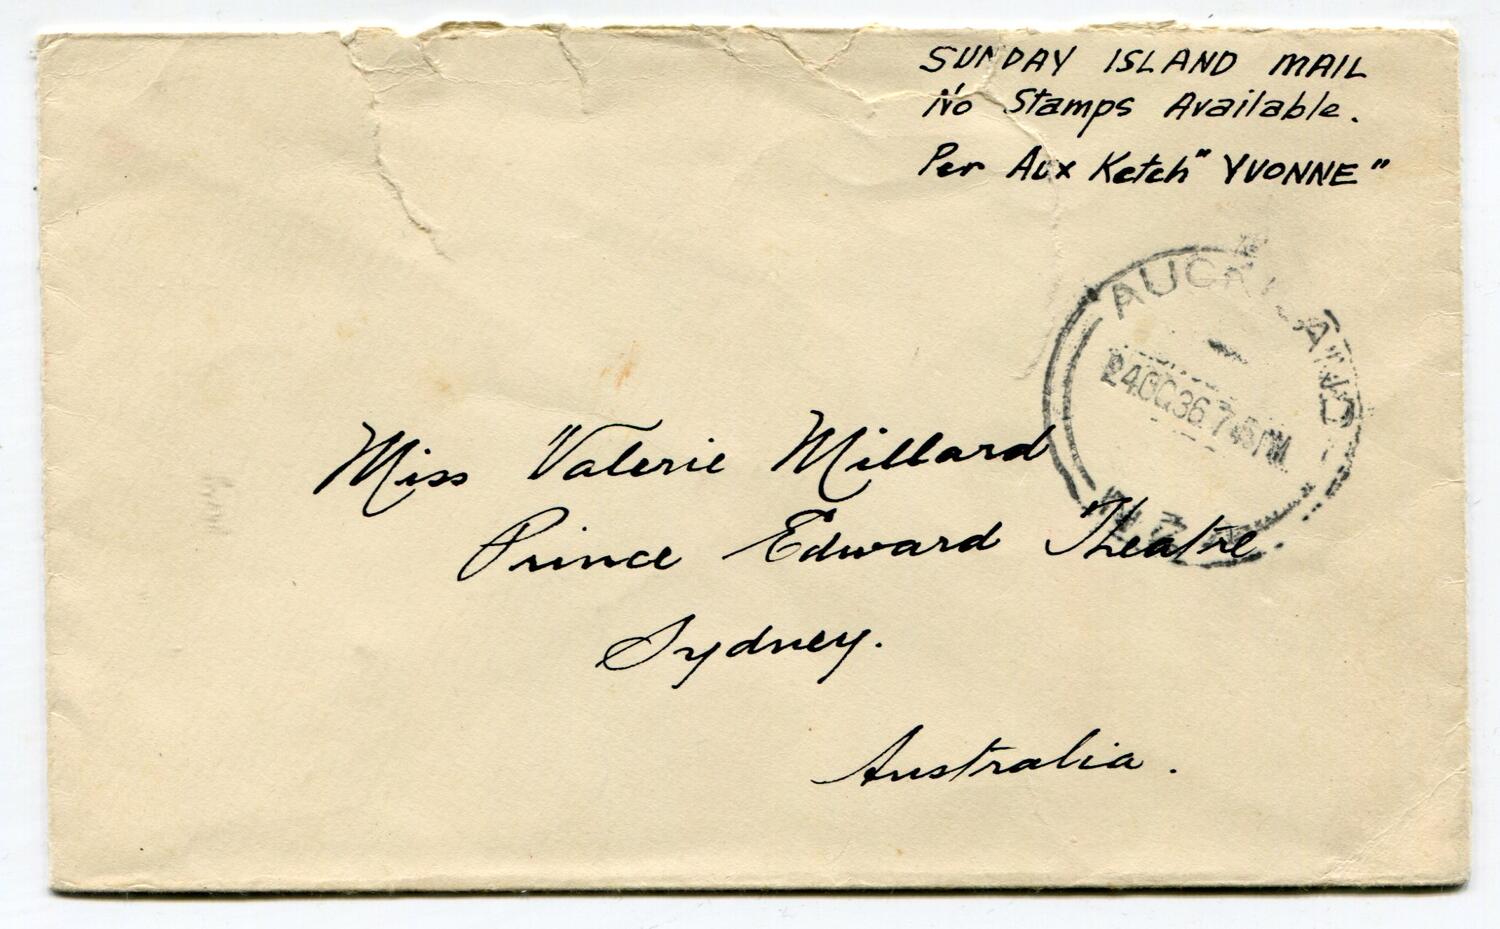 SUNDAY ISLAND MAIL
No Stamps Available.
Per Aux Ketch "YVONNE"
AUCKLAND
24OC36 745PM
N.Z.
Miss Valerie Millard
Prince Edward Theatre
Sydney.
Australia.